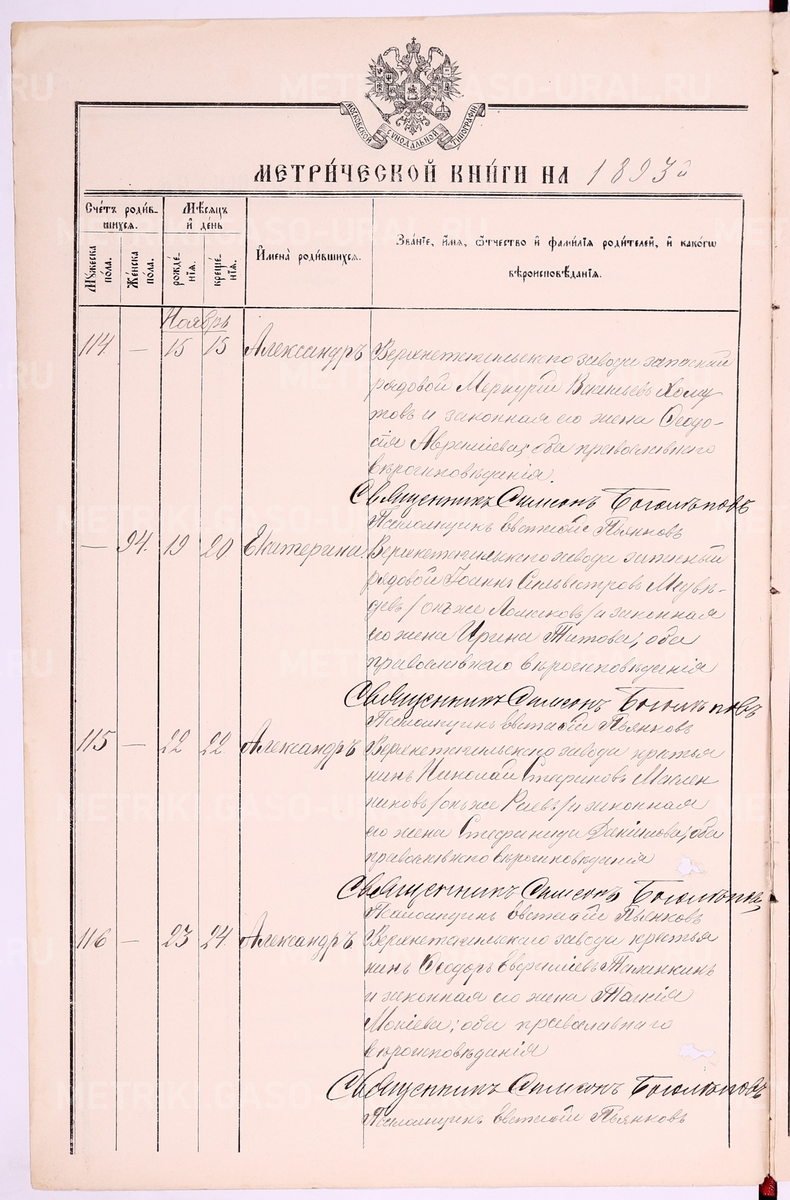 МОСКОВСКОЙ СѴНОДАЛЬНОЙ ТИПОГРАФІИ
МЕТРИ́ЧЕСКОЙ КНИ́ГИ НА 1893 г
Сче́тъ роди́в-
шихся.
Мѣ́сяцъ
и҆ де́нь
Му́жеска
по́ла.
Же́нска
по́ла.
рожде́-
нїѧ.
креще́-
нїѧ.
И҆мена̀ роди́вшихся.
Зва́нїе, и҆́мя, ѻ҆́тчество и҆ фами́лїя роди́телей, и҆ како́гѡ
вѣроисповѣ́данїя.
Ноябрь
114 — 15 15 Александръ Верхнетагильскаго завода запасный
рядовой Меркурій Хому
товъ и законная его жена Ѳеодо-
сія оба православнаго
вѣроисповѣданія.
Священникъ Симеонъ Боголѣповъ
Псаломщикъ Евстафій Пьянковъ
— 94. 19 20 Екатерина. Верхнетагильскаго завода запасный
рядовой Іоаннъ Сильвестровъ Медвѣ-
девъ /онъ же / и законная
его жена Ирина Титова, оба
православнаго вѣроисповѣданія
Священникъ Симеонъ Боголѣповъ
Псаломщикъ Евстафій Пьянковъ
115 — 22 22 Александръ Верхнетагильскаго завода крестья
нинъ Николай Стефановъ
никовъ /онъ же / и законная
его жена Стефанида Данилова, оба
православнаго вѣроисповѣданія
Священникъ Симеонъ Боголѣповъ
Псаломщикъ Евстафій Пьянковъ
116 — 23 24 Александръ Верхнетагильскаго завода крестья
нинъ Ѳеодоръ Таланкинъ
и законная его жена Таисія
Мокіева; оба православнаго
вѣроисповѣданія
Священникъ Симеонъ Боголѣповъ
Псаломщикъ Евстафій Пьянковъ
METRIKI.GASO-URAL.RU